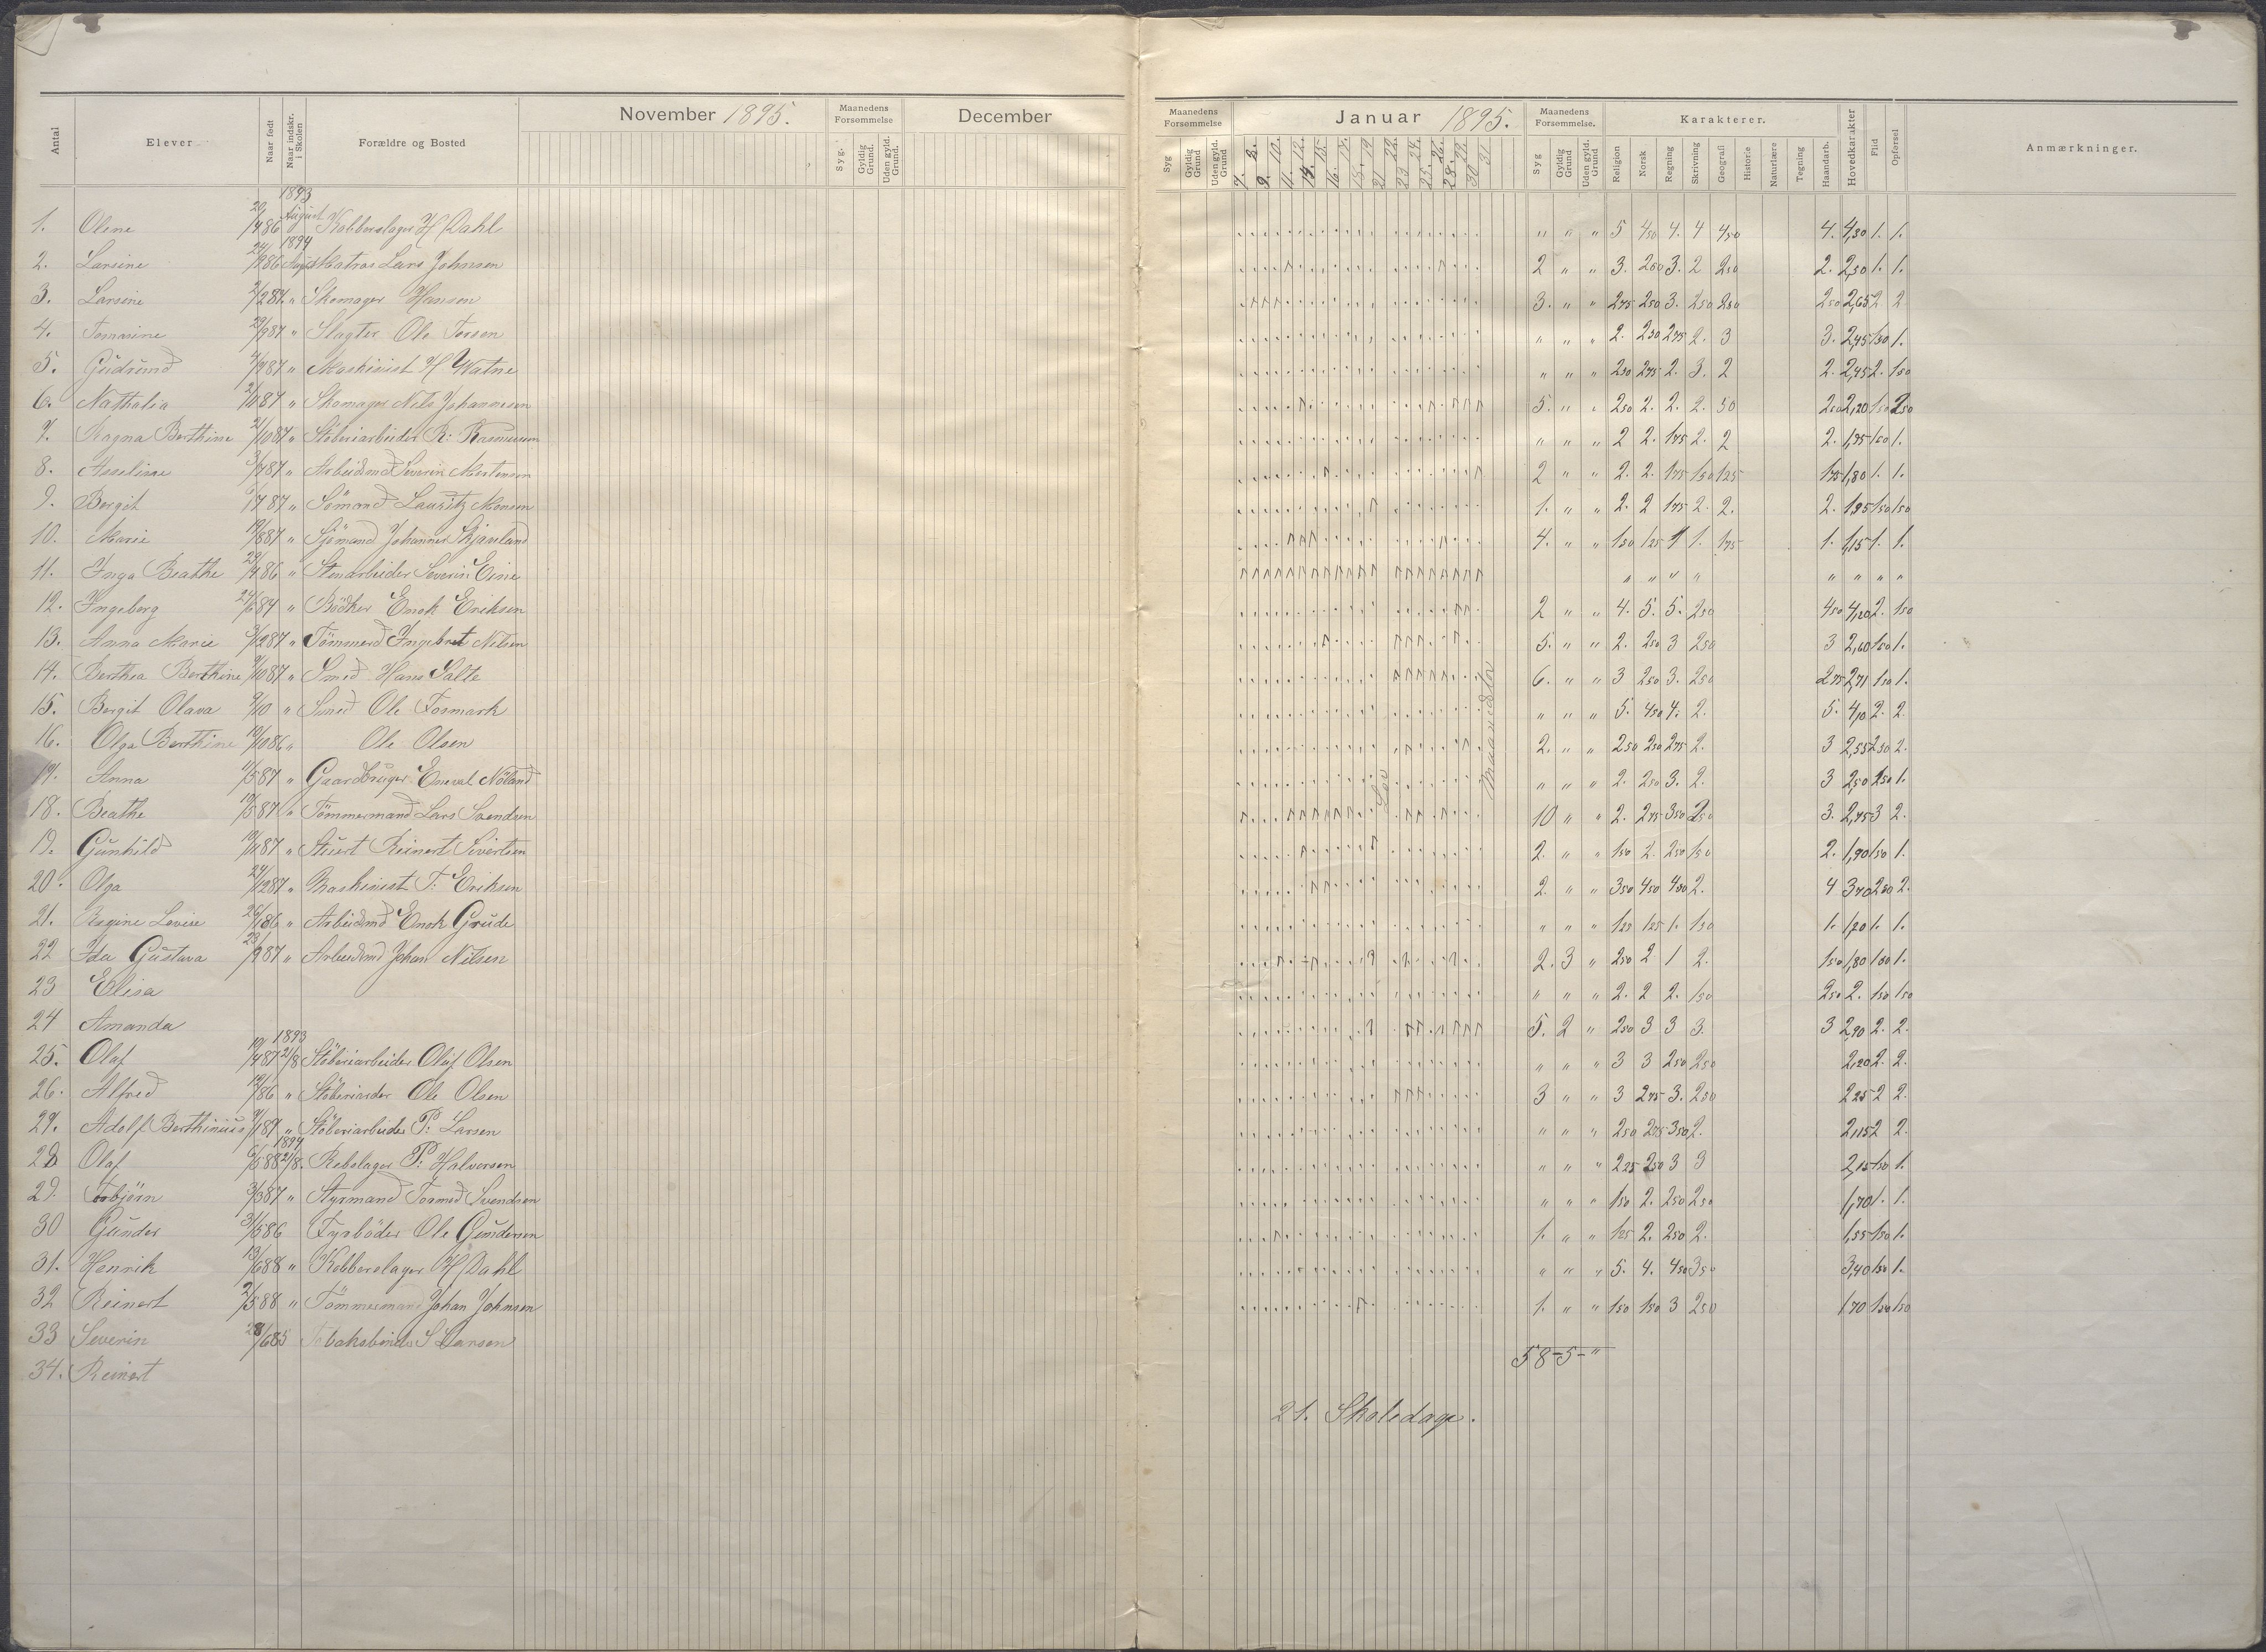 Antal Elever Naar født Naar indskr. i Skolen Forældre og Bosted November 1895. Maanedens Forsømmelse Syg. Gyldig Grund. Uden gyld. Grund. December
Maanedens Forsømmelse Syg Gyldig Grund Uden gyld. Grund Januar 1895. Maanedens Forsømmelse. Syg Gyldig Grund Uden gyld. Grund Karakterer. Religion Norsk Regning Skrivning Geografi Historie Naturlære Tegning Haandarb. Hovedkarakter Flid Opførsel Anmærkninger.
7. 8. 9. 10. 11. 12. 14. 15. 16. 17. 18. 19 21 22. 23 24. 25. 26. 28. 29. 30 31
1893
1. Olene 20/4 86 August Kobberslager H Dahl " " " 5 450 4. 4 450 4. 4,30 1. 1.
1894
2. Larsine Matros Lars Johnsen 2 " " 3. 250 3. 2 250 2. 2,50 1. 1.
3. Larsine 2/2 87. " Skomager Hansen 3. " " 275 250 3. 250 250 250 2,65 2 2
4. Tomasine 29/9 87 " Slagter Ole Torsen " " " 2. 250 275 2. 3 3. 2,45 150 1.
5. Gudrund " Maskinist H Watne " " " 250 275 2. 3. 2 2. 2,45 2. 150
6. Nathalia 2/10 87 " Skomager Nils Johannesen 5. " " 250 2. 2. 2. 50 250 2,20 150 250
7. Ragna Berthine 21/10 87 " Stöberiarbeider R: Rasmussen " " " 2 2. 175 2. 2 2. 1,95 150 1.
8. Asseline 3/7 87 " Arbeidsmd Severin Mortensen 2 " " 2. 2. 175 150 125 175 1,80 1. 1.
9. Bergit " Sömand Lauritz Monsen 1. " " 2. 2 175 2. 2. 2. 195 150 150
10. Marie 19/8 87 " Sjömand Johannes Skjæveland 4. " " 150 125 1 1. 175 1. 1,15 1. 1.
11. Inga Beathe 29/4 86 " Stenarbeider Severin Eine " " " " " " " "
12. Ingeborg 24/6 87 " Bödker Enok Eriksen 2 " " 4. 5. 5. 250 450 4,20 2. 150
13. Anna Marie 3/12 87 " Tömmerd Ingebret Nilsen 5. " " 2. 250 3 250 3 2,60 150 1.
14. Berthea Berthine 9/10 87 " Smed Hans Salte 6. " " 3 250 3. 250 275 2,71 150 1.
15. Bergit Olava 9/10 " Smed Ole Fosmark " " " 5. 450 4. 2. 5. 4,10 2. 2.
16. Olga Berthine 10/10 86 " Ole Olsen 2. " " 250 250 275 2. 3 2,55 250 2.
17. Anna 11/5 87 " Gaardbruger Enevat Nöland " " " 2. 250 3. 2. 3 2,50 250 1.
18. Beathe 10/5 87 " Tömmermand Lars Svendsen 10 " " 2. 275 350 250 3. 2,75 3 2.
19. Gunhild " Stuert Reinert Sivertsen 2. " " 150 2. 250 150 2. 1,90 150 1.
20. Olga 24/12 87 " Maskinist T: Eriksen 2 " " 350 450 450 2. 4 370 250 2.
21. Regine Lovise 26/1 86 " Arbeidsmd Enok Grude " " " 125 125 1. 150 1. 1,20 1. 1.
22 Ida Gustava 23/9 87 " Arbeidsmd Johan Nilsen 2. 3 " 250 2 1 2. 150 1,80 150 1.
23 Elisa " " " 2. 2 2. 150 250 2. 150 150
24 Amanda 5. 2 " 250 3 3 3. 3 2,90 2. 2.
1893
25. Olaf 10/4 87 21/8 Stöberiarbeider Oluf Olsen " " " 3 3 250 250 2,20 2. 2.
26. Alfred " Stöberiarder Ole Olsen 3 " " 3 275 3. 250 225 2 2.
27. Adolf Berthinius 9/1 87 " Stöberiarbeider P: Larsen " " " 250 275 350 2. 2,15 2 2.
1894
28 Olaf 6/5 88 21/8. Rebslager P: Halvorsen " " " 225 250 3 3 2,15 150 1.
29. Torbjörn 3/3 87 " Styrmand Tormod Svendsen " " " 150 2. 250 250 1,70 1. 1.
30 Gunder 31/5 86 Fyrböder Ole Gundersen 1. " " 125 2. 250 2. 1,55 150 1.
31. Henrik 13/6 88 " Kobberslager H Dahl " " " 5. 4. 450 350 3,40 150 1.
32 Reinert 2/5 88 " Tömmermand Johan Johnsen 1. " " 150 150 3 250 1,70 150 150
33 Severin 28/6 85 S Larsen
58-5-"
34. Reinert
Lov
Maanedslov
21. Skoledage.